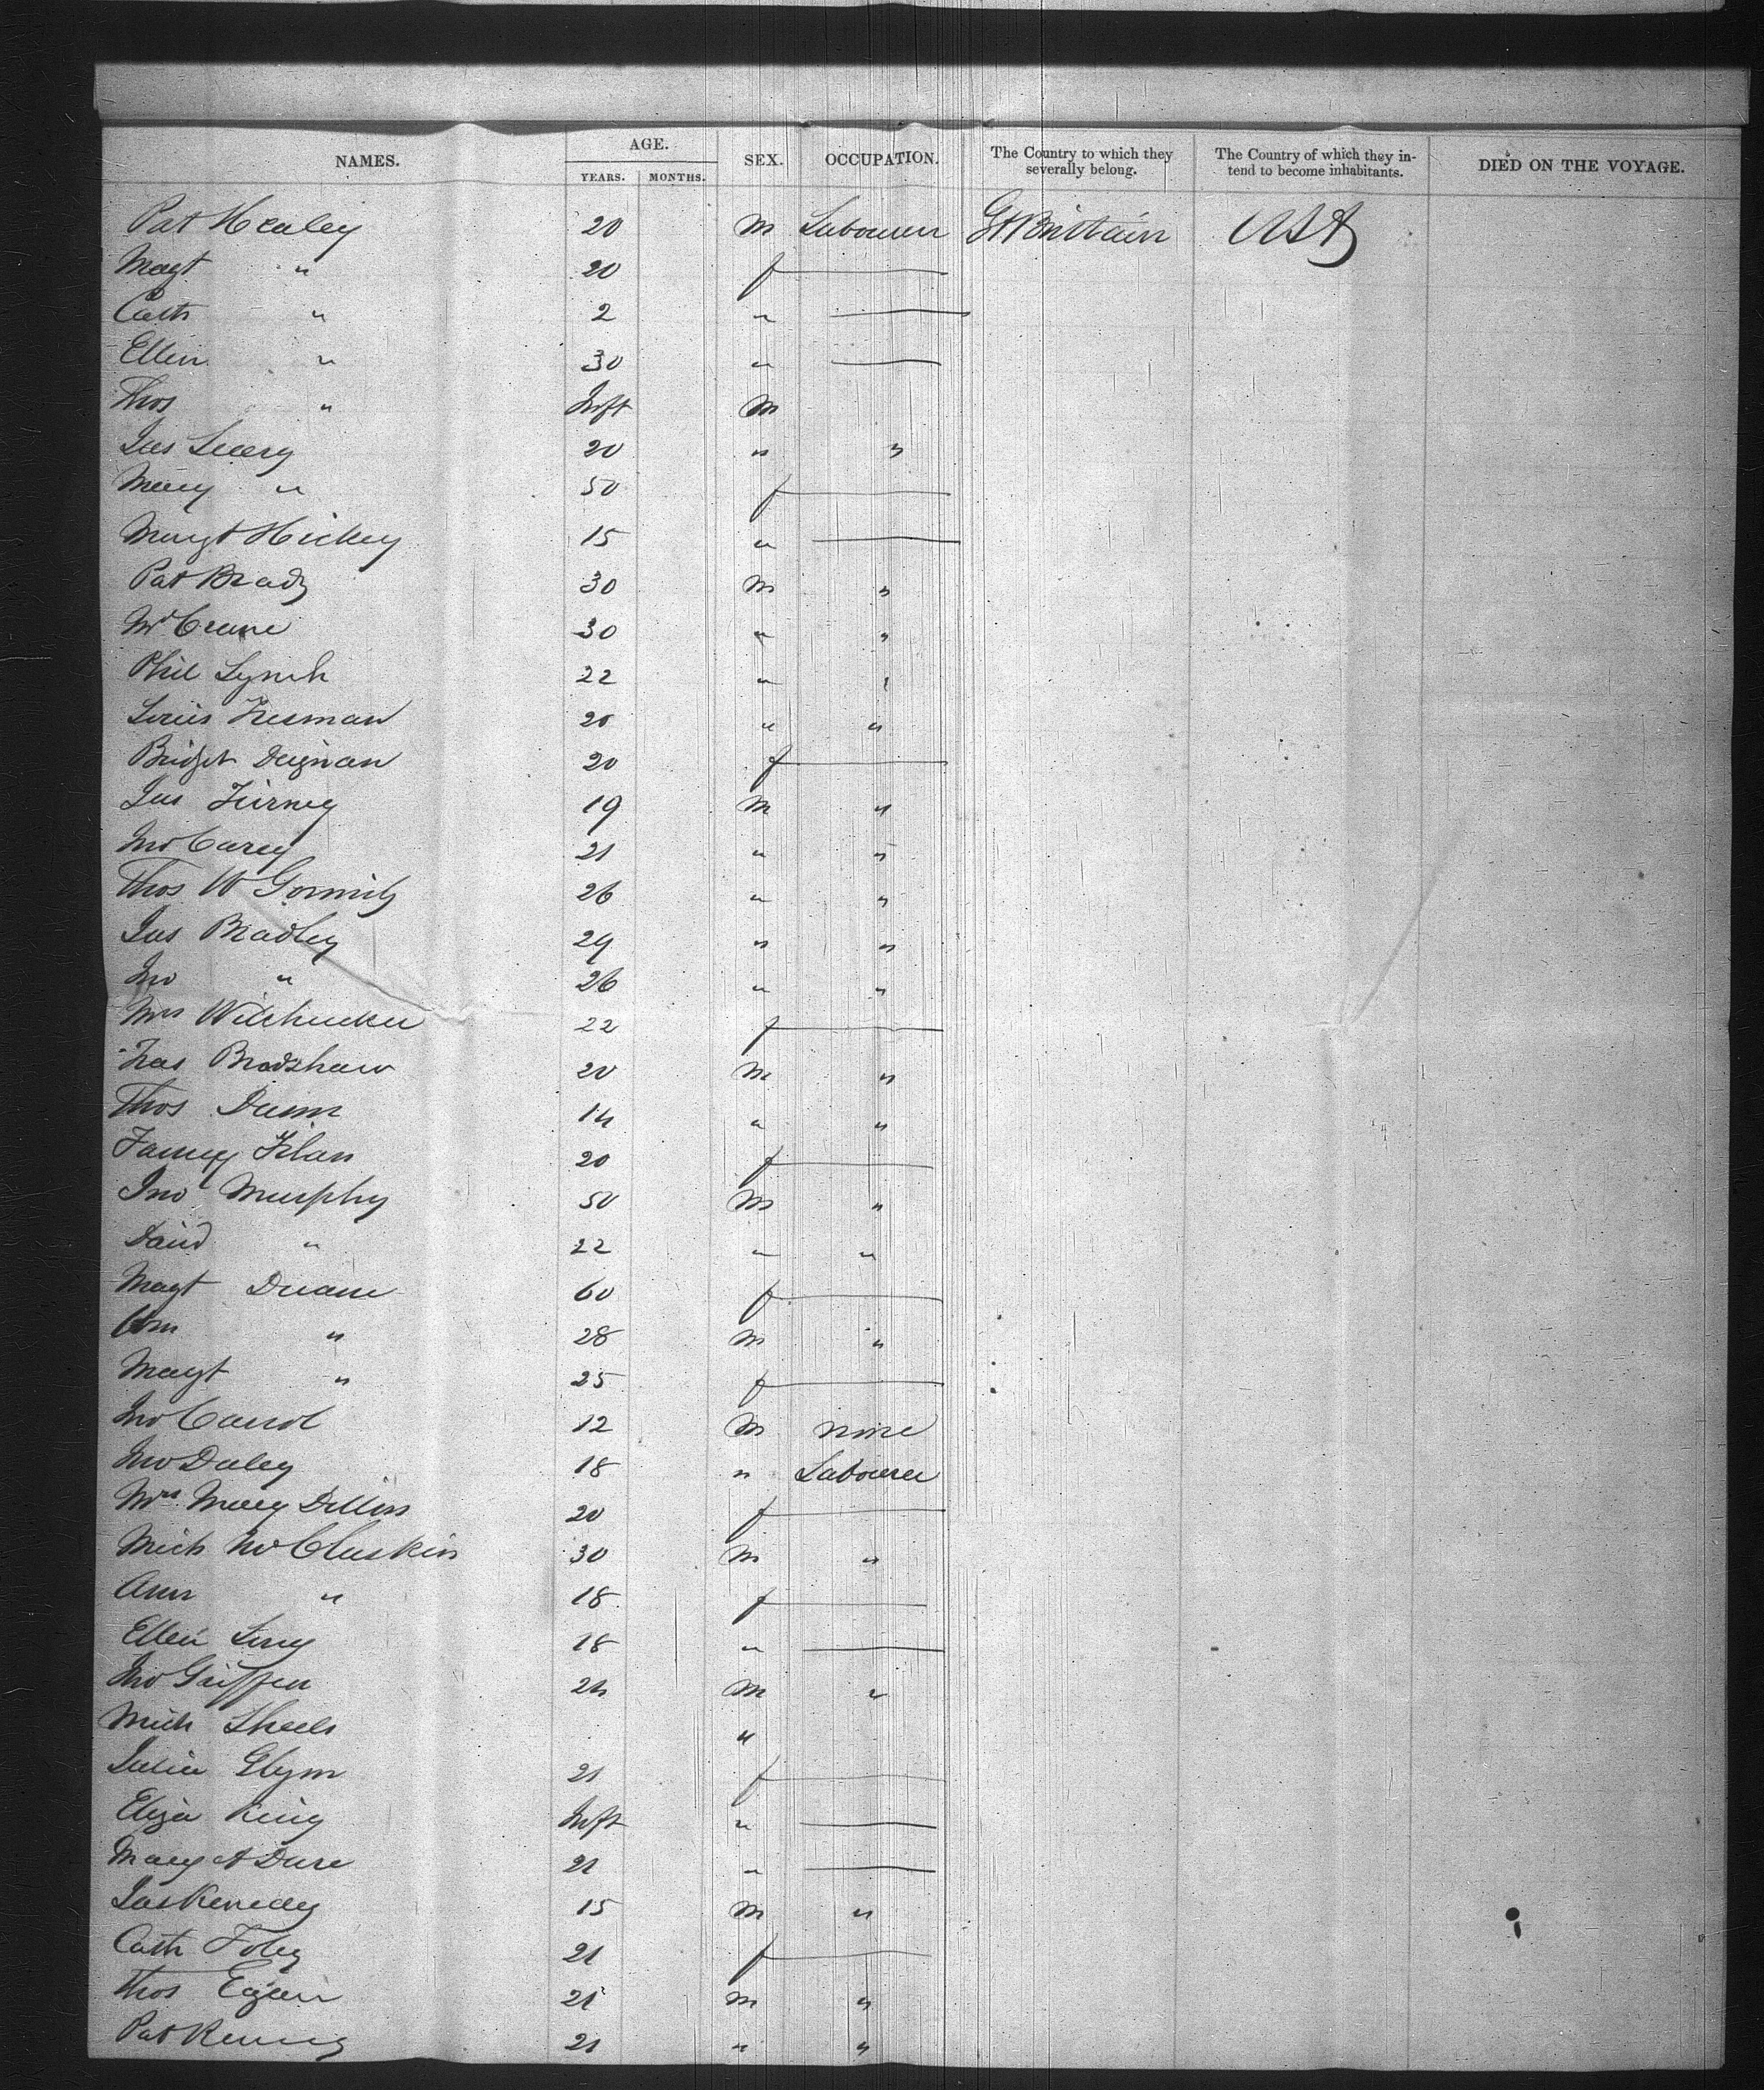 NAMES. AGE. YEARS. MONTHS. SEX. OCCUPATION. The Country to which they severally belong. The Country of which they intend to become inhabitants. DIED ON THE VOYAGE.
Pat Healey 20 M Labourer Gt Brittain USA
Magt " 20 f
Cath " 2 "
Ellen " 30 "
Thos " Inft M
Jas Leary 20 " "
Mary " 50 f
Margt Hickey 15 "
Pat Brady 30 M "
30 " "
Phil Lynch 22 " "
Louis 20 " "
Bridget Deignan 20 f
Jas Tierney 19 M "
Jno Carey 21 " "
Thos 26 " "
Jas Bradley 29 " "
Jno " 26 " "
Mrs 22 f
Bradshaw 20 M "
Thos Dunn 14 " "
Fanny 20 f
Jno Murphy 50 M "
David " 22 " "
Magt Duane 60 f
" 28 M "
Magt " 25 f
Jno Carrol 12 M none
Jno Daley 18 " Labourer
Mrs Mary Dillon 20 f
Mich McCluskin 30 M "
Ann " 18 f
Ellen 18 "
Jno Griffen 24 M "
Mich Sheels "
Julia Glynn 21 f
Eliza King Inft "
21 "
Jas Kenedy 15 M "
Cath Foley 21 f
Thos Egan 21 M "
Pat 21 " "